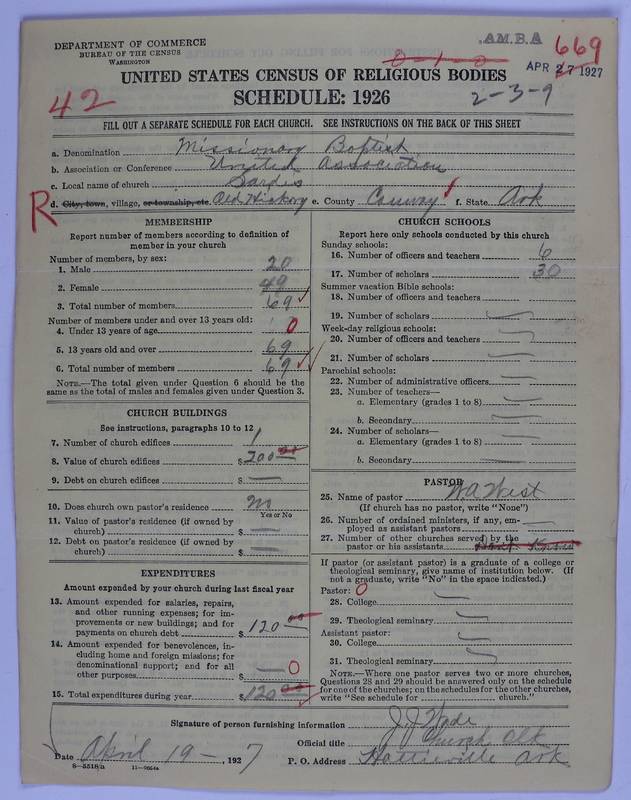 DEPARTMENT OF COMMERCE
BUREAU OF THE CENSUS
WASHINGTON
A.M.B.A
669
APR 27 1927
UNITED STATES CENSUS OF RELIGIOUS BODIES
42
SCHEDULE: 1926
2-3-9
FILL OUT A SEPARATE SCHEDULE FOR EACH CHURCH. SEE INSTRUCTIONS ON THE BACK OF THIS SHEET
a. Denomination Missionary Baptist
b. Association or Conference United Association
c. Local name of church Sardis
R d. City, town, village, or township, etc. Old Hickory e. County Conway f. State Ark
MEMBERSHIP
Report number of members according to definition of
member in your church
Number of members, by sex:
1. Male 20
2. Female 49
3. Total number of members 69
Number of members under and over 13 years old:
4. Under 13 years of age 0
5. 13 years old and over 69
6. Total number of members 69
NOTE.—The total given under Question 6 should be the
same as the total of males and females given under Question 3.
CHURCH BUILDINGS
See instructions, paragraphs 10 to 12
7. Number of church edifices 1
8. Value of church edifices $200 00
9. Debt on church edifices $ —
10. Does church own pastor's residence No
Yes or No
11. Value of pastor's residence (if owned by
church) $ —
12. Debt on pastor's residence (if owned by
church) $ —
EXPENDITURES
Amount expended by your church during last fiscal year
13. Amount expended for salaries, repairs,
and other running expenses; for im-
provements or new buildings; and for
payments on church debt $ 120 00
14. Amount expended for benevolences, in-
cluding home and foreign missions; for
denominational support; and for all
other purposes $ — 0
15. Total expenditures during year $120 00
CHURCH SCHOOLS
Report here only schools conducted by this church
Sunday schools:
16. Number of officers and teachers 6
17. Number of scholars 30
Summer vacation Bible schools:
18. Number of officers and teachers
19. Number of scholars —
Week-day religious schools:
20. Number of officers and teachers —
21. Number of scholars —
Parochial schools:
22. Number of administrative officers —
23. Number of teachers—
a. Elementary (grades 1 to 8) —
b. Secondary —
24. Number of scholars—
a. Elementary (grades 1 to 8) —
b. Secondary —
PASTOR
25. Name of pastor W.A. West
(If church has no pastor, write "None")
26. Number of ordained ministers, if any, em-
ployed as assistant pastors —
27. Number of other churches served by the
pastor or his assistants Dont Know
If pastor (or assistant pastor) is a graduate of a college or
theological seminary, give name of institution below. (If
not a graduate, write "No" in the space indicated.)
Pastor: 0
28. College —
29. Theological seminary —
Assistant pastor:
30. College —
31. Theological seminary —
NOTE.—Where one pastor serves two or more churches,
Questions 28 and 29 should be answered only on the schedule
for one of the churches; on the schedules for the other churches,
write "See schedule for church."
Signature of person furnishing information J.J. Wade
Official title Church Clk
Date April 19 —, 1927 P. O. Address Hattieville Ark
8—5518/a